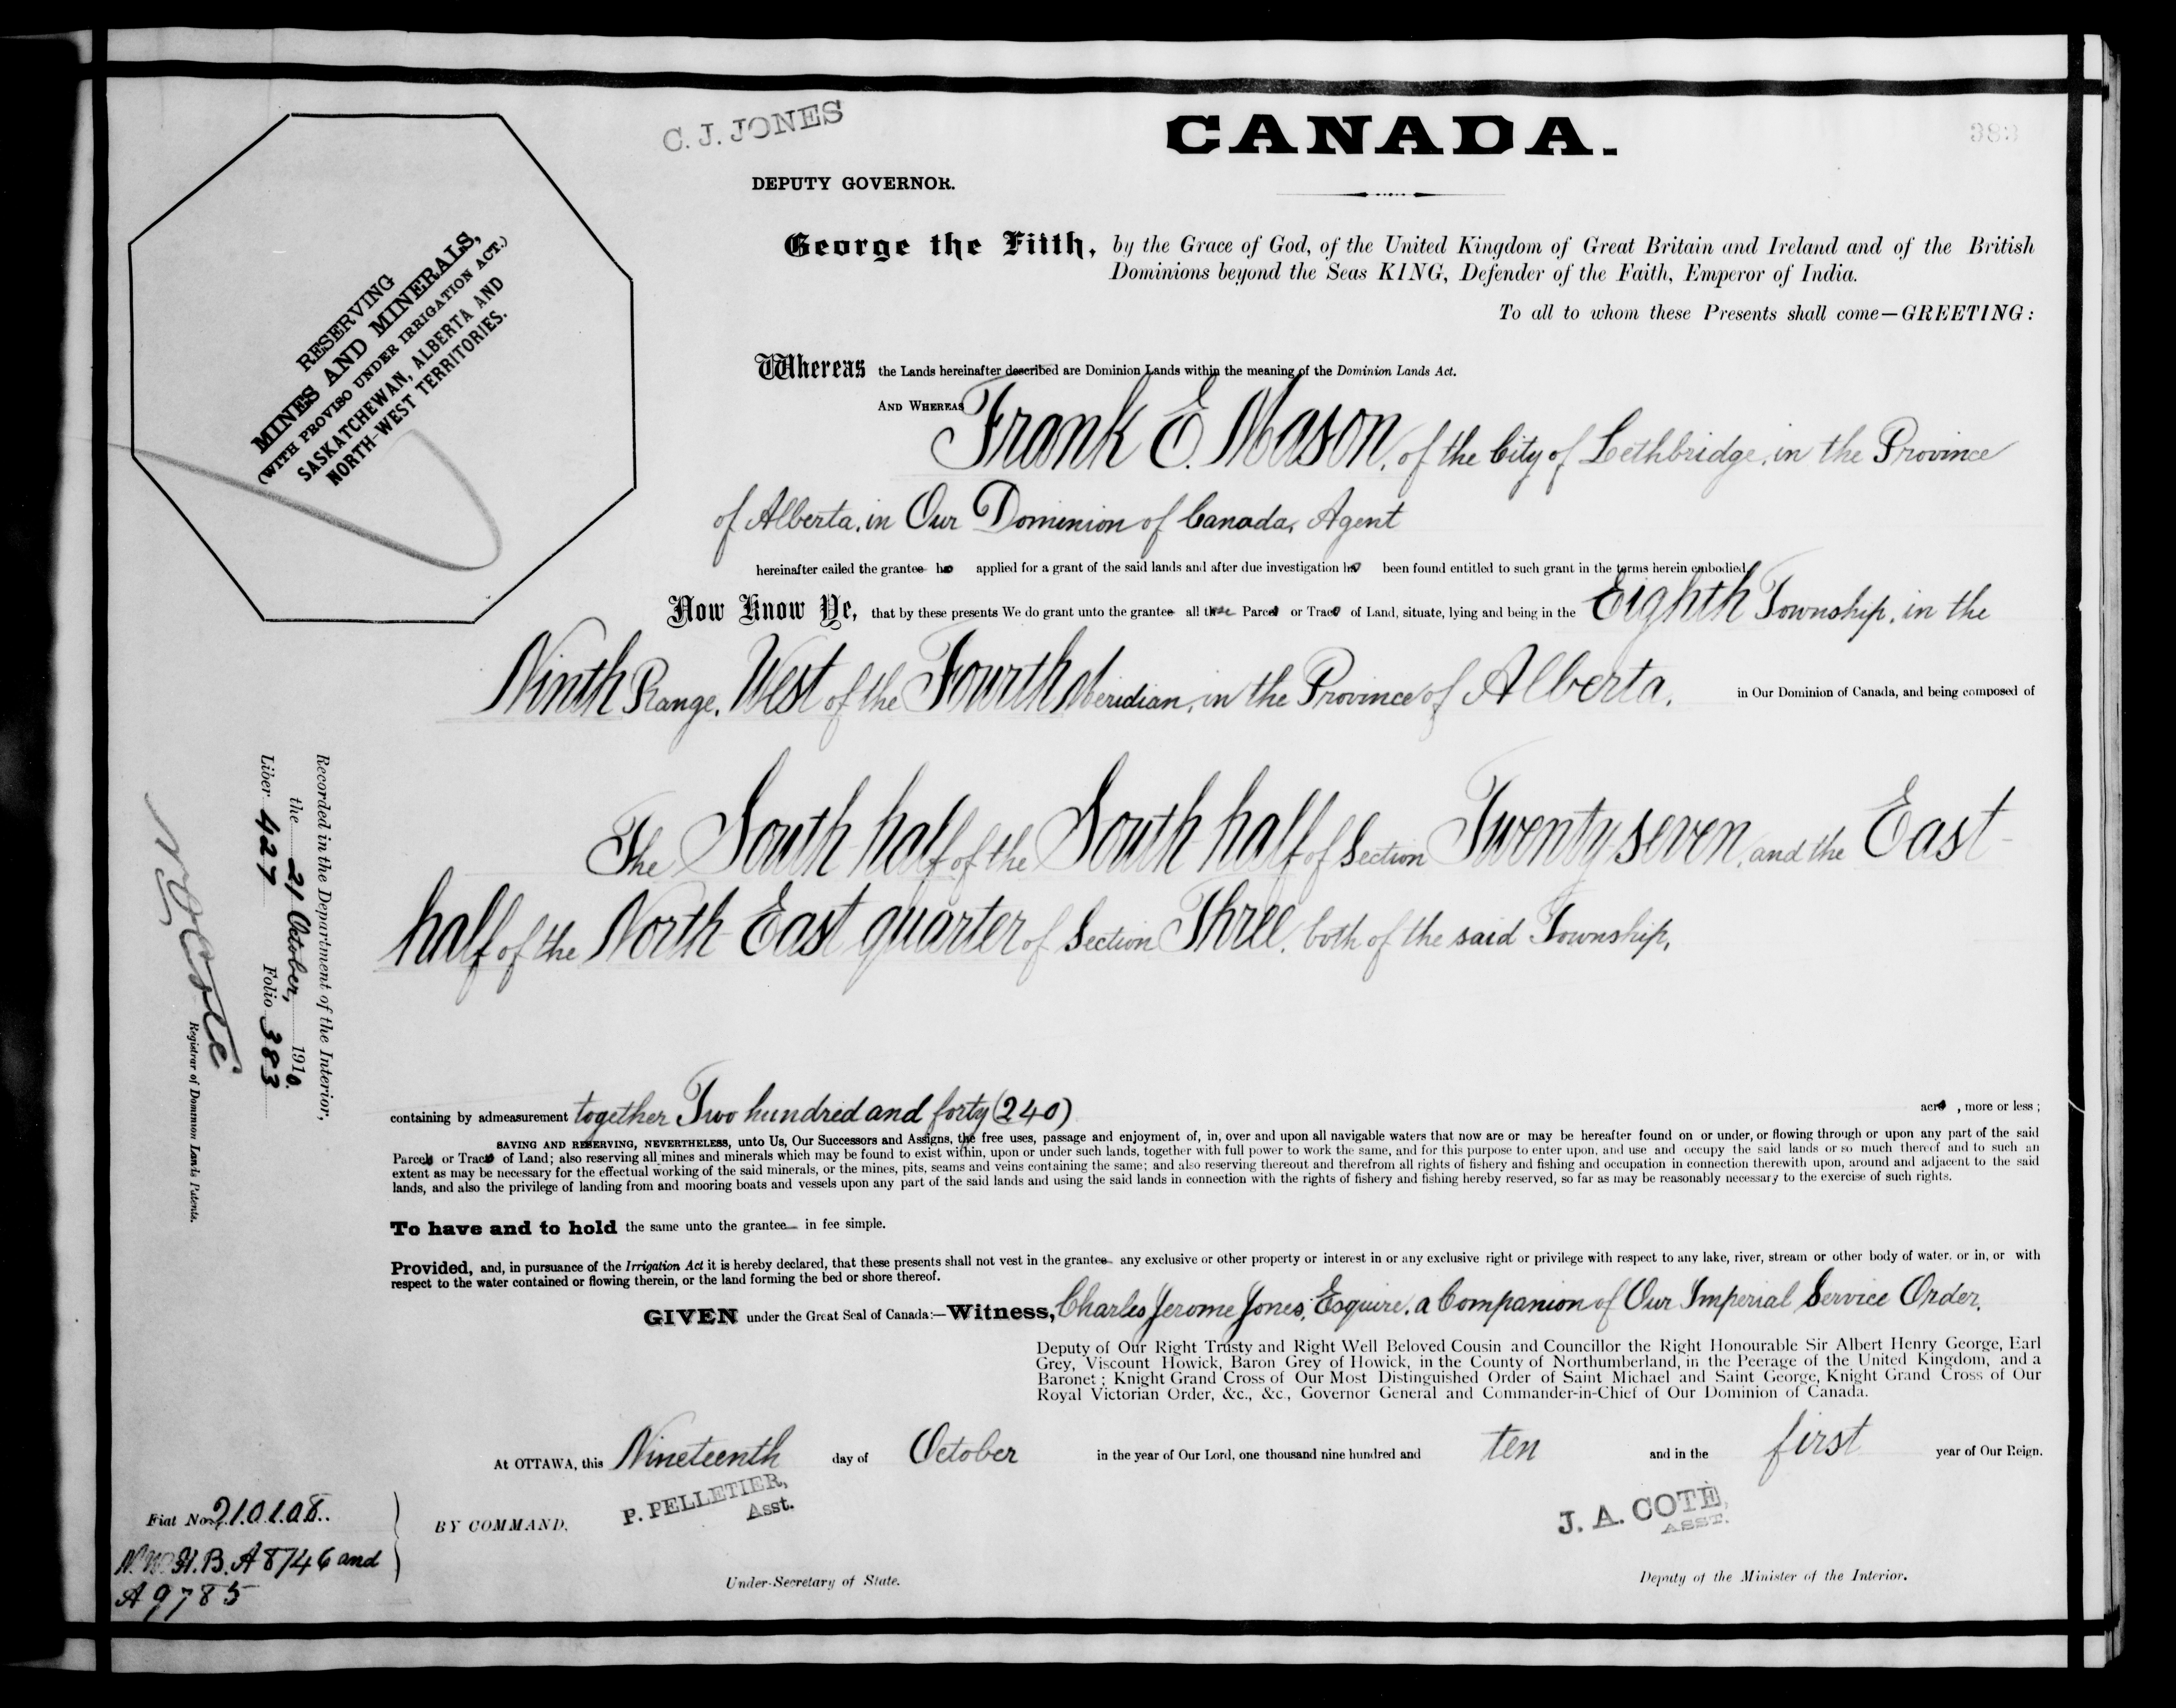 C. J. JONES
CANADA.
383
DEPUTY GOVERNOR.
George the Fifth, by the Grace of God, of the United Kingdom of Great Britain and Ireland and of the British
Dominions beyond the Seas KING, Defender of the Faith, Emperor of India.
To all to whom these Presents shall come—GREETING:
RESERVING
MINES AND MINERALS,
(WITH PROVISO UNDER IRRIGATION ACT.)
SASKATCHEWAN, ALBERTA AND
NORTH-WEST TERRITORIES.
Whereas the Lands hereinafter described are Dominion Lands within the meaning of the Dominion Lands Act.
AND WHEREAS Frank E. Mason, of the City of Lethbridge, in the Province
of Alberta, in Our Dominion of Canada, Agent
hereinafter called the grantee has applied for a grant of the said lands and after due investigation has been found entitled to such grant in the terms herein embodied,
Now Know Ye, that by these presents We do grant unto the grantee all those Parcels or Tracts of Land, situate, lying and being in the Eighth Township, in the
Ninth Range, West of the Fourth Meridian, in the Province of Alberta, in Our Dominion of Canada, and being composed of
The South half of the South half of Section Twenty seven, and the East
half of the North East quarter of Section Three, both of the said Township,
Recorded in the Department of the Interior,
the 21 October, 1910.
Liber 427 Folio 383
N O Coté
Registrar of Dominion Lands Patents.
containing by admeasurement together Two hundred and forty (240) acres, more or less;
SAVING AND RESERVING, NEVERTHELESS, unto Us, Our Successors and Assigns, the free uses, passage and enjoyment of, in, over and upon all navigable waters that now are or may be hereafter found on or under, or flowing through or upon any part of the said
Parcels or Tracts of Land; also reserving all mines and minerals which may be found to exist within, upon or under such lands, together with full power to work the same, and for this purpose to enter upon, and use and occupy the said lands or so much thereof and to such an
extent as may be necessary for the effectual working of the said minerals, or the mines, pits, seams and veins containing the same; and also reserving thereout and therefrom all rights of fishery and fishing and occupation in connection therewith upon, around and adjacent to the said
lands, and also the privilege of landing from and mooring boats and vessels upon any part of the said lands and using the said lands in connection with the rights of fishery and fishing hereby reserved, so far as may be reasonably necessary to the exercise of such rights.
To have and to hold the same unto the grantee in fee simple.
Provided, and, in pursuance of the Irrigation Act it is hereby declared, that these presents shall not vest in the grantee any exclusive or other property or interest in or any exclusive right or privilege with respect to any lake, river, stream or other body of water, or in, or with
respect to the water contained or flowing therein, or the land forming the bed or shore thereof.
GIVEN under the Great Seal of Canada:—Witness, Charles Jerome Jones, Esquire, a Companion of Our Imperial Service Order,
Deputy of Our Right Trusty and Right Well Beloved Cousin and Councillor the Right Honourable Sir Albert Henry George, Earl
Grey, Viscount Howick, Baron Grey of Howick, in the County of Northumberland, in the Peerage of the United Kingdom, and a
Baronet; Knight Grand Cross of Our Most Distinguished Order of Saint Michael and Saint George, Knight Grand Cross of Our
Royal Victorian Order, &c., &c., Governor General and Commander-in-Chief of Our Dominion of Canada.
At OTTAWA, this Nineteenth day of October in the year of Our Lord, one thousand nine hundred and ten and in the first year of Our Reign.
P. PELLETIER,
Asst.
J. A. COTÉ,
ASST.
Fiat No. 210108.
BY COMMAND,
N.W.H.B. A 8746 and
A 9785
Under-Secretary of State.
Deputy of the Minister of the Interior.